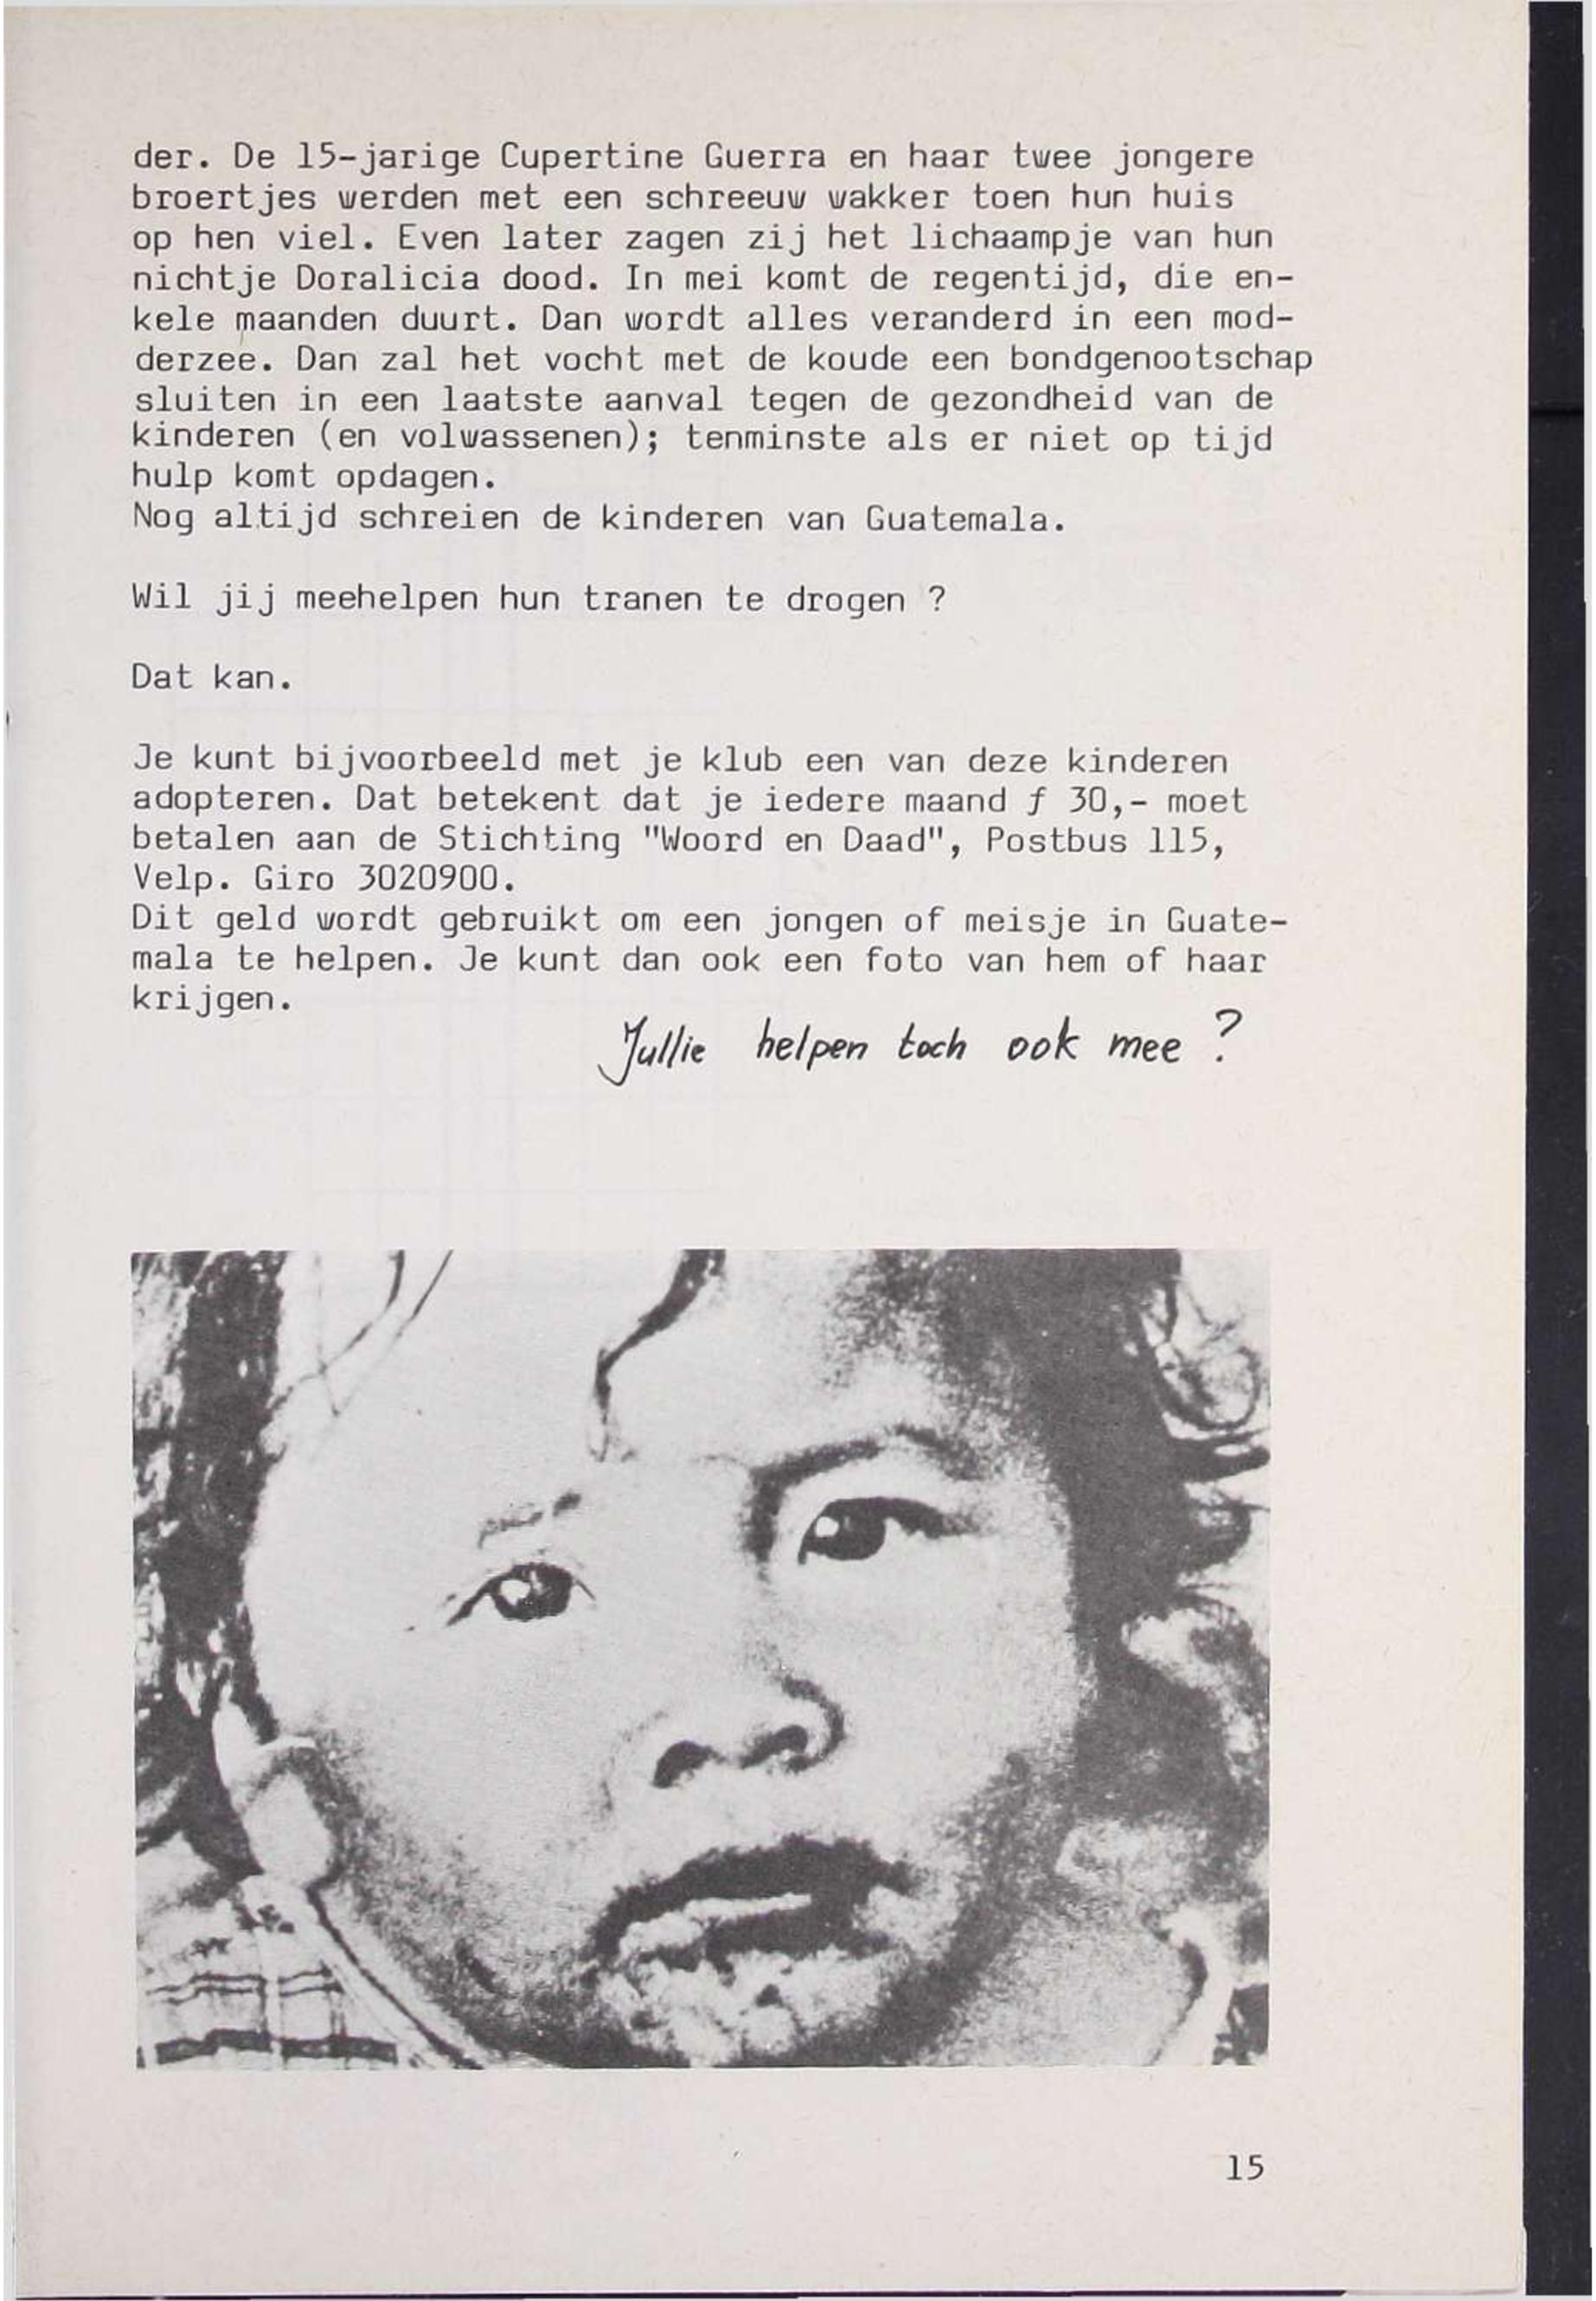 der. De 15-jarige Cupertine Guerra en haar twee jongere
broertjes werden met een schreeuw wakker toen hun huis
op hen viel. Even later zagen zij het lichaampje van hun
nichtje Doralicia dood. In mei komt de regentijd, die en-
kele maanden duurt. Dan wordt alles veranderd in een mod-
derzee. Dan zal het vocht met de koude een bondgenootschap
sluiten in een laatste aanval tegen de gezondheid van de
kinderen (en volwassenen); tenminste als er niet op tijd
hulp komt opdagen.
Nog altijd schreien de kinderen van Guatemala.
Wil jij meehelpen hun tranen te drogen ?
Dat kan.
Je kunt bijvoorbeeld met je klub een van deze kinderen
adopteren. Dat betekent dat je iedere maand ƒ 30,- moet
betalen aan de Stichting "Woord en Daad", Postbus 115,
Velp. Giro 3020900.
Dit geld wordt gebruikt om een jongen of meisje in Guate-
mala te helpen. Je kunt dan ook een foto van hem of haar
krijgen.
Jullie helpen toch ook mee ?
15